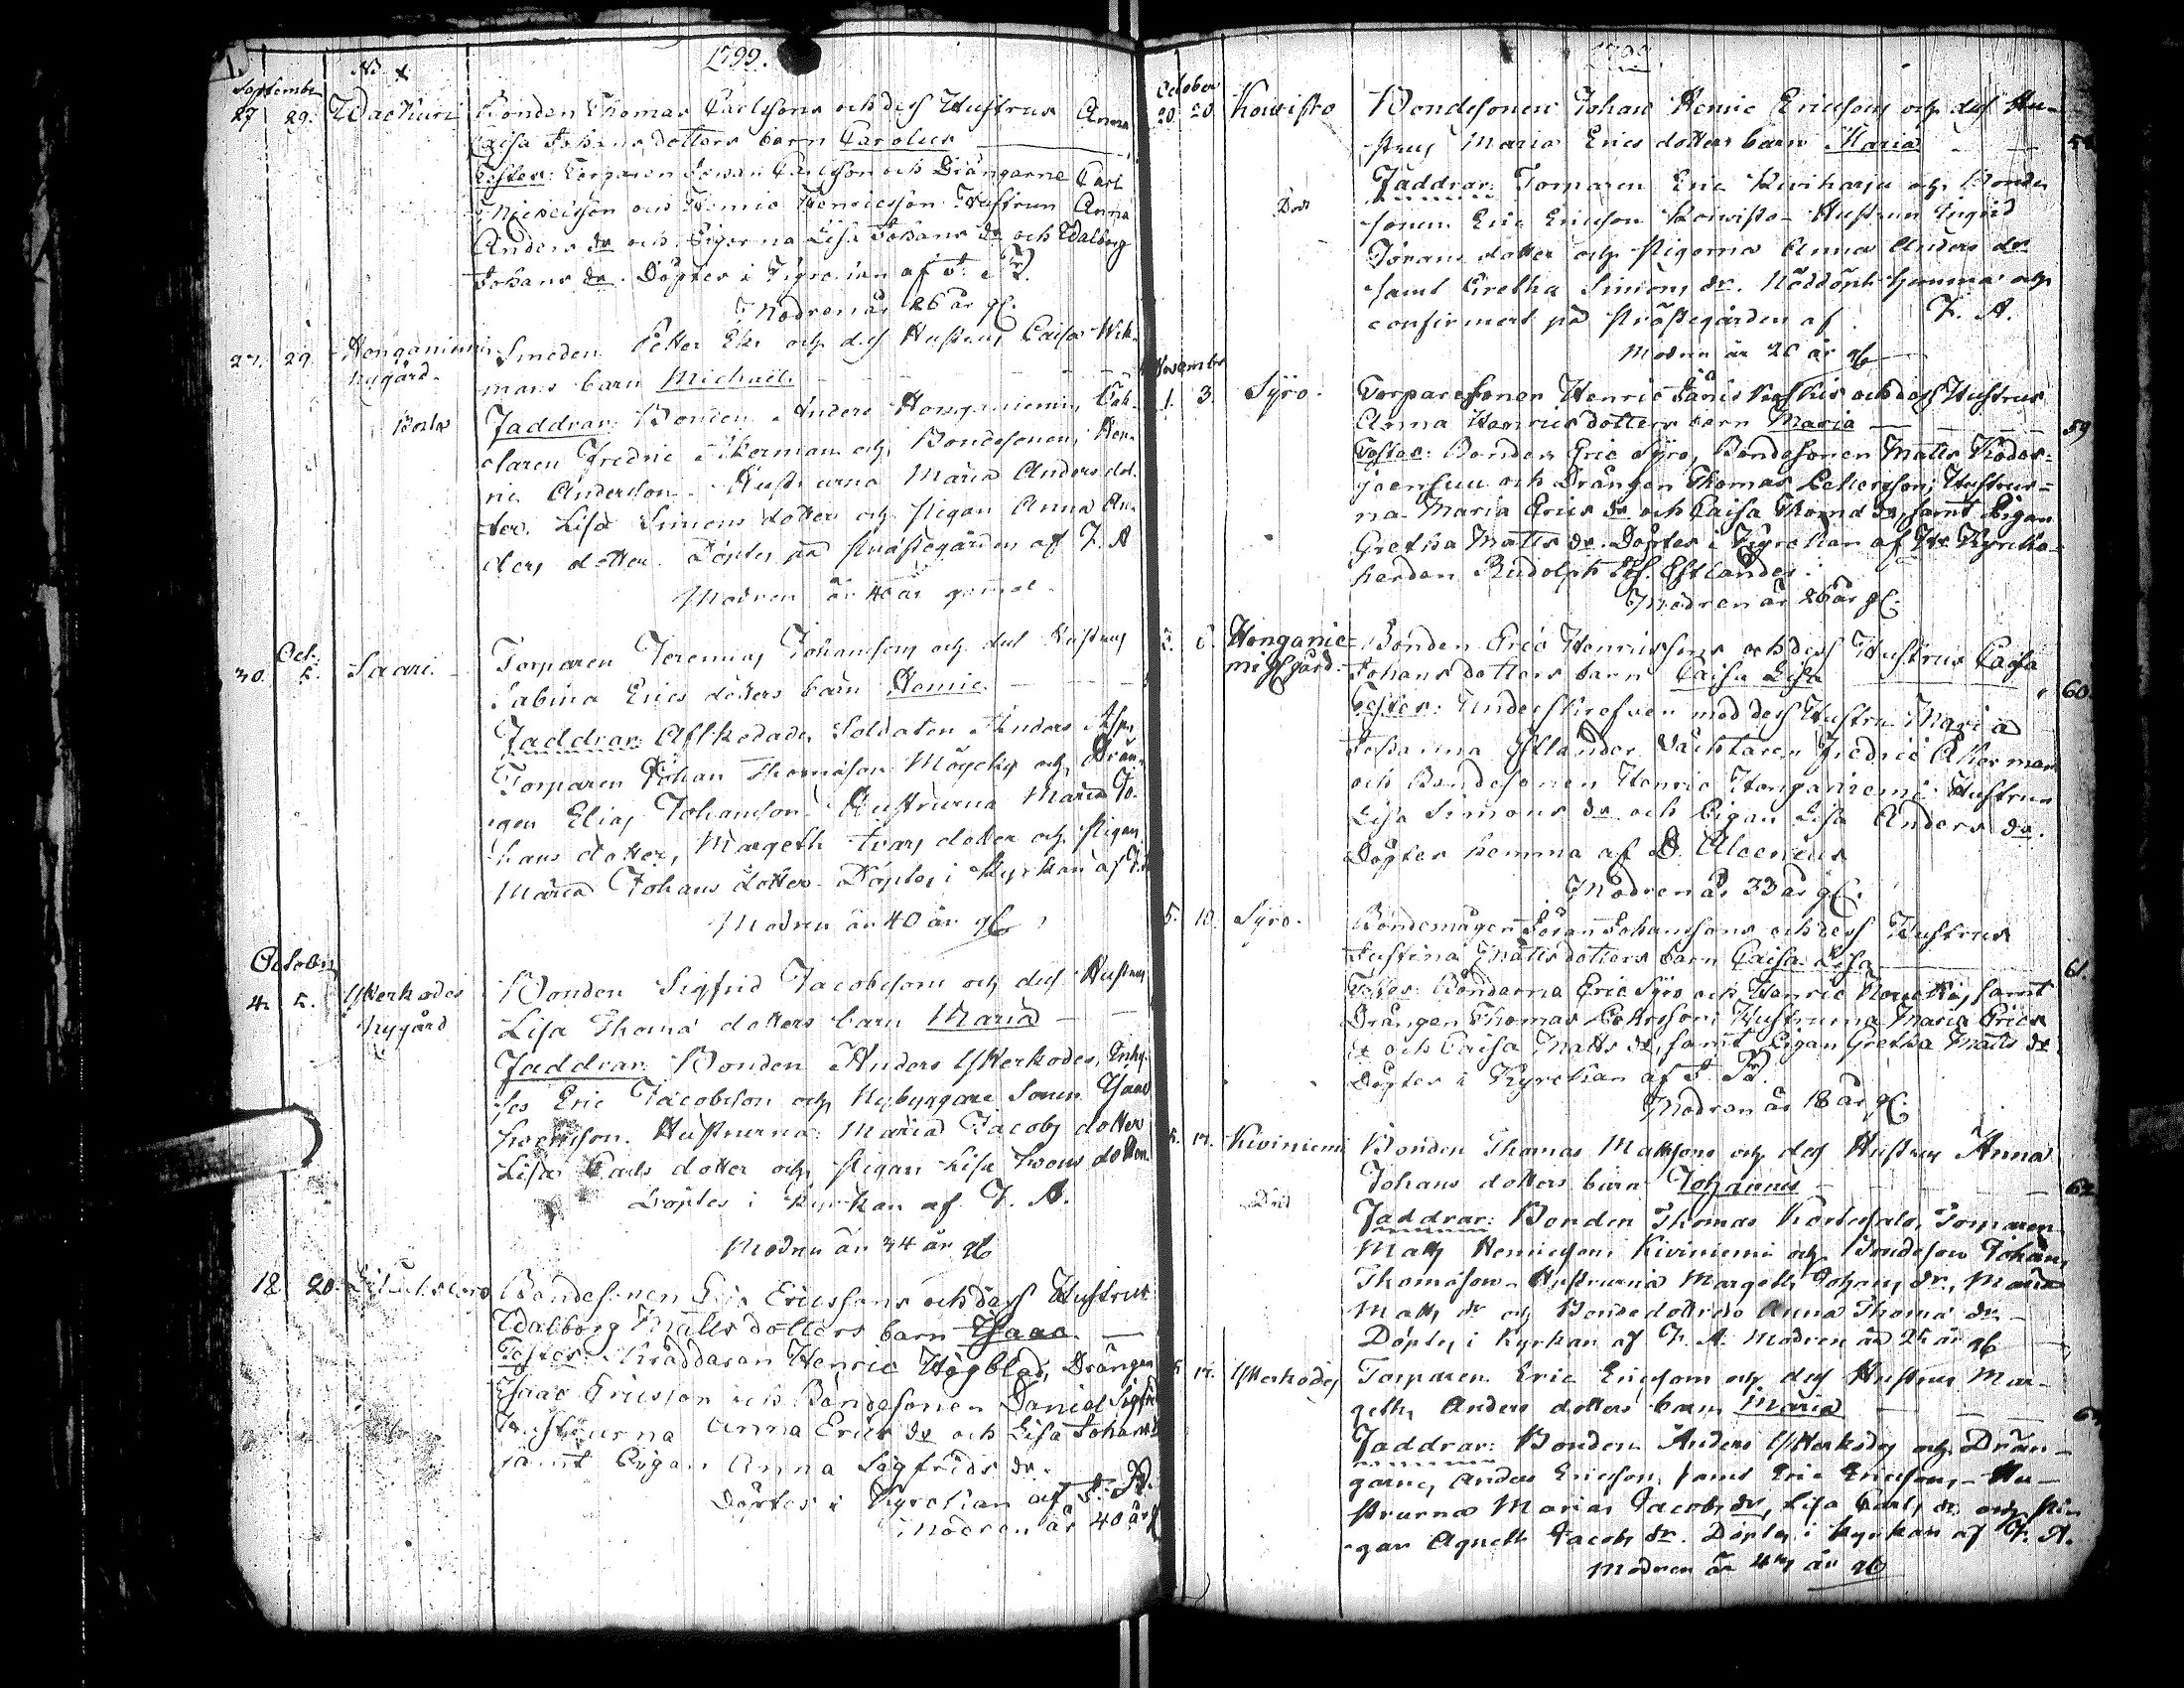 1799.
September
27 29. Wachuri Bonden Thomas Carlssons och dess Hustrus Anna
Caisa Johans dotters barn Carolus
Testes: Torparen Johan Carlsson och Drängarne Carl
Michelsson och Henric Henricsson Hustrun Anna
Anders dr och Pigorna Lisa Johans dr och Walborg
Johans dr. Döptes i Kyrckan af J. R.
Modren är 26 år gl.
27. 29. Honganiemi Smeden Petter Ek och dess Hustrus Caisa Wek-
nygård. mans barn Michael.
Faddrar: Bonden Anders Honganiemi,
Fredric Åkerman och Bondesonen Hen-
ric Andersson. Hustrurna Maria Anders dot-
ter, Lisa Simons dotter och Pigan Anna An-
ders dotter. Döptes på Prästegården af J. A
Modren är 40 år gammal
Oct.
30. Saari. Torparen Jeremias Johanssons och dess Hustrus
Sabina Erics dotters barn Henric.
Faddrar: Afskedade Soldaten Anders
Torparen Johan Thomasson och Drän-
gen Elias Johansson. Hustrurna Maria Jo-
hans dotter, Margeth Ivars dotter och Pigan
Maria Johans dotter. Döptes i Kyrkan af J. A
Modren är 40 år gl
October
4. Ytterkodes Bonden Sigfrid Jacobssons och dess Hustrus
Nygård Lisa Thomas dotters barn Maria
Faddrar: Bonden Anders Ytterkodes, Inhy-
ses Eric Jacobsson och Nybyggare Sonen Isaac
Svensson. Hustrurna: Maria Jacobs dotter
Lisa Carls dotter och Pigan Lisa Svens dotter.
Döptes i Kyrkan af J. A.
Modren är 34 år gl
18. 20. Bondesonen Eric Ericssons och dess Hustrus
Walborg Matts dotters barn Isaac
Testes: Skräddaren Henric Högblad, Drängen
Isaac Ericsson och Bondesonen Daniel Sigfr
Hustrurna Anna Erics dr och Lisa Johans
samt Pigan Anna Sigfrids dr.
Döptes i Kyrckan af J. R.
Modren är 40 år g
October
20. 20. Koivisto Bondesonen Johan Henric Ericssons och dess Hu-
strus Maria Erics dotters barn Maria
Död Faddrar: Torparen Eric Kiviharju och Bonde
sonen Eric Ericsson Koivisto Hustrun Ingrid
Jörans dotter och Pigorna Anna Anders dr
samt Gretha Simons dr. Nöddöpt hemma och
confirmert på Prästegården af J. A.
Modren är 20 år gl
November
1. 3. Syro. Torparesonen Henric och dess Hustrus
Anna Henrics dotters barn Maria 59
Testes: Bonden Eric Syro, Bondesonen Matts Kodes-
joensuu och Drängen Thomas Pettersson; Hustrur-
na Maria Erics dr och Caisa Thoma dr, samt Pigan
Gretha Matts dr. Döptes i Kyrckan af Hr Kyrcko-
herden Rudolph Estlander.
Modren är 26 år gl.
6. Honganie- Bonden Eric Henricssons och dess Hustrus Caisa
mi gård. Johans dotters barn Caisa Lisa 60.
Testes: Underskrefven med dess Hustru Maria
Johanna Estlander Väcktaren Fredric Åkerman
och Bondesonen Henric Honganiemi. Hustrun
Lisa Simons dr och Pigan Lisa Anders dr.
Döptes hemma af D. Alcenius
Modren är 33 år gl.
5. 10. Syro. Bondemågen Jöran Johanssons och dess Hustrus
Justina Matts dotters barn Caisa Lisa 61.
Testes: Bönderna Eric Syro och Henric samt
Drängen Thomas Pettersson: Hustrurna Maria Erics
dr och Caisa Matts dr, samt Pigan Gretha Matts dr
Döptes i Kyrckan af J. R.
Modren är 18 år gl.
Kiviniemi Bonden Thomas Mattssons och dess Hustrus Anna
Johans dotters barn Johannes 62
Död Faddrar: Bonden Thomas Torparen
Matts Henricsson Kiviniemi och Bondeson Johan
Thomasson. Hustrurna Margeth Johans dr, Maria
Matts dr och Bondedottren Anna Thoma dr
Döptes i Kyrkan af J. A. Modren är 25 år gl
Ytterkodes Torparen Eric Ericssons och dess Hustrus Mar-
geth Anders dotters barn Maria
Faddrar: Bonden Anders Ytterkodes och Drän-
garne, Anders Ericsson, samt Eric Ericsson, Hu-
strurna Maria Jacobs dr, Lisa Carls dr och Pi-
gan Agneth Jacobs dr. Döptes i Kyrkan af J. A.
Modren är 44 år gl